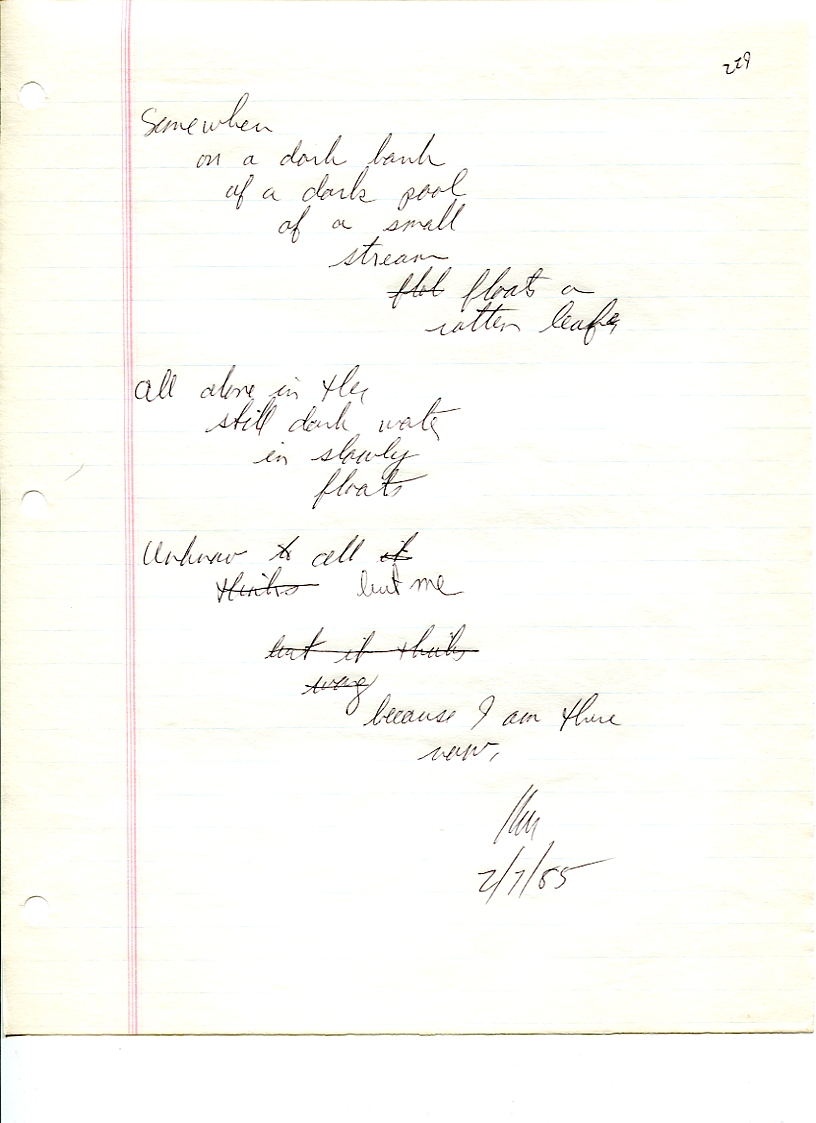 229
Somewhen
on a dark bank
of a dark pool
of a small
stream
floats a
rotten leaf
all alone in the
still dark water
in slowly
floats
Unknown to all it
thinks but me
but it thinks
wrong
because I am there
now,
2/7/85